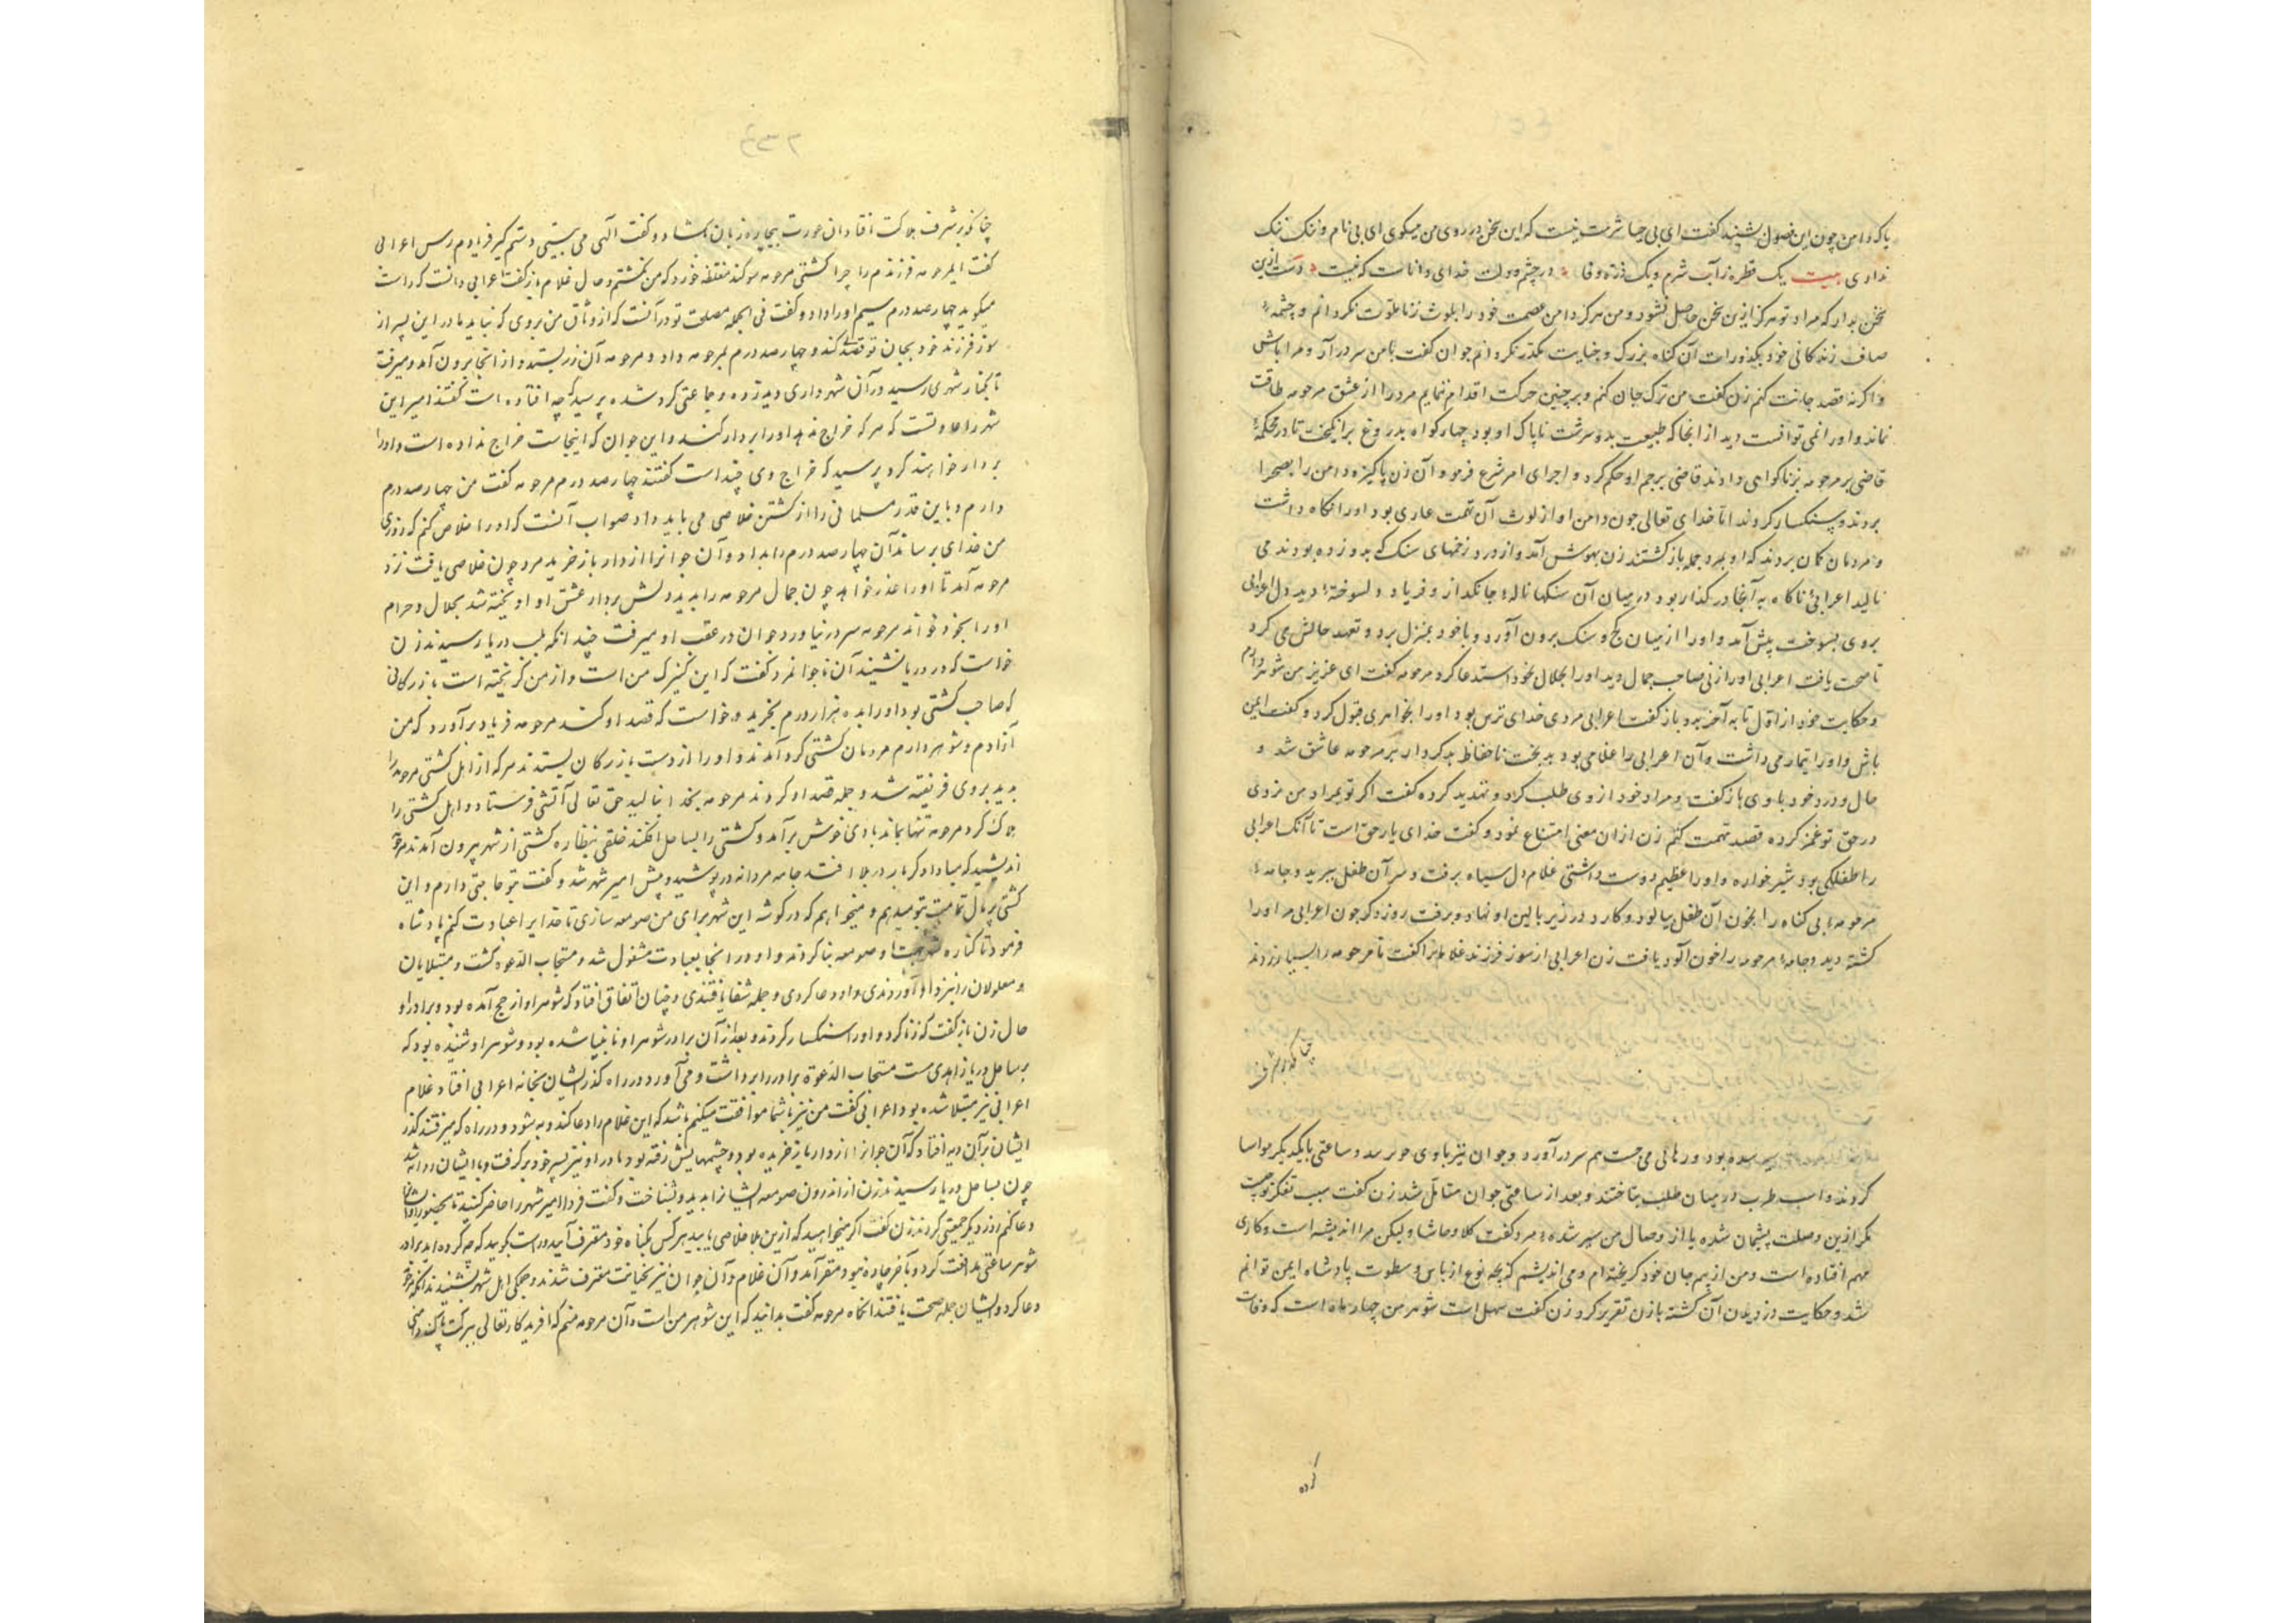 پاکدامن چون این فصول بشنید گفت ای بی حیا شرمت نیست که این سخن در روی من میکوی ای بی نام و ننک ننک
نداری بیت یک قطره ز آب شرم و یک ذره وفا در چشم و دلت خدای داناست که نیست دست ازین
سخن بدار که مراد تو هرکز ازین سخن حاصل نشود و من هرکز دامن عصمت خود را بلوث زنا ملوث نکردانم و چشمهٔ
صاف زندکانی خود بکذورات آن کناه بزرک و جنایت مکدر نکردانم جوان کفت با من سر درآر و مرا باش
واکرنه قصد جانت کنم زن کفت من ترک جان کنم و بر چنین حرکت اقدام ننمایم مرد را از عشق مرحومه طاقت
نماند و او را نمی توانست دید از انجا که طبیعت بد و سرشت ناپاک او بود چهار کواه بدروغ برانکیخت تا در محکمهٔ
قاضی بر مرحومه بزنا کواهی دادند قاضی برجم او حکم کرد و اجرای امر شرع فرمود آن زن پاکیزه دامن را بصحرا
بردند و سنکسار کردند اما خدای تعالی چون دامن او از لوث آن تهمت عاری بود او را نکاه داشت
و مردمان کمان بردند که او بمرد جمله باز کشتند زن بهوش آمد و از درد زخمهای سنک که بدو زده بودند می
نالید اعرابیٔ ناکاه به آنجا در کذار بود در میان آن سنکها نالهٔ جانکداز و فریاد دلسوختهٔ دید دل اعرابی
بروی بسوخت پیش آمد و او را از میان کچ و سنک برون آورد و با خود بمنزل برد و تعهد حالش می کرد
تا صحت یافت اعرابی او را زنی صاحب جمال دید او را بحلال بخود استدعا کرد مرحومه کفت ای عزیز من شوهر دارم
و حکایت خود از اول تا به آخر بدو باز کفت اعرابی مردی خدای ترس بود او را بخواهری قبول کرد و کفت ایمن
باش و او را تیمار می داشت و آن اعرابی را غلامی بود بدبخت ناحفاظ بدکردار بر مرحومه عاشق شد و
حال و درد خود با وی باز کفت و مراد خود از وی طلب کرد و تهدید کرده کفت اکر تو بمراد من نزوی
در حق تو غمز کرده قصد تهمت کنم زن از ان معنی امتناع نمود و کفت خدای یار حق است تا آنک اعرابی
را طفلکی بود شیر خواره و او را عظیم دوست داشتی غلام دل سیاه برفت و سر آن طفل ببرید و جامهٔ
مرحومهٔ بی کناه را بخون آن طفل بیالود و کارد در زیر بالین او نهاد و برفت روز دکر چون اعرابی مر او را
کشته دید و جامهٔ مرحومه را خون آلود یافت زن اعرابی از سوز فرزند غلامانرا کفت تا مرحومه را بسیار زدند
چنانکه بر شرف
بود و رهائی می جست هم سر در آورد و جوان نیز با وی و ساعتی با یکدیکر مواسا
کردند و اسب طرب در میدان طلب بتاختند و بعد از ساعتی جوان متأمل شد زن کفت سبب تفکر تو چیست
مکر ازین وصلت پشیمان شده یا از وصال من سیر شدهٔ مرد کفت کلا و حاشا ولیکن مرا اندیشه است و کاری
مهم افتاده است و من از بیم جان خود کریخته ام و می اندیشم که بچه نوع از باس و سطوت پادشاه ایمن توانم
شد و حکایت دزدیدن آن کشته با زن تقریر کرد زن کفت سهل است شوهر من چهار ماه است که وفات
کرده
چنانکه بر شرف هلاکت افتاد آن عورت بیچاره زبان بکشاد و کفت الهی می بینی دستم کیر فریادم رس اعرابی
کفت ای مرحومه فرزندم را چرا کشتی مرحومه سوکند مغلظه خورد که من نکشتم و حال غلام باز کفت اعرابی دانست که راست
میکوید چهار صد درم سیم او را داد و کفت فی الجمله مصلحت تو در آنست که از وثاق من بروی که نباید مادر این پسر از
سوز فرزند خود بجان تو قصد کند و چهار صد درم بمرحومه داد و مرحومه آن زر بستد و از انجا برون آمد و میرفت
تا بکنار شهری رسید در آن شهر داری دید زده و جماعتی کرد شده پرسید که چه افتاده است کفتند امیر این
شهر را عادتست که هر که خراج ندهد او را بردار کند و این جوان که اینجاست خراج نداده است و او را
بردار خواهند کرد پرسید که خراج وی چند است کفتند چهار صد درم مرحومه کفت من چهار صد درم
دارم و باین قدر مسلمانی را از کشتن خلاصی می باید داد صواب آنست که او را خلاص کنم که روزی
من خدای برساند آن چهار صد درم را بداد و آن جوانرا از دار باز خرید مرد چون خلاصی یافت نزد
مرحومه آمد تا او را عذر خواهد چون جمال مرحومه را بدید دلش بردار عشق او آویخته شد بحلال و حرام
او را بخود خواند مرحومه سر در نیاورد جوان در عقب او میرفت چندانکه بلب دریا رسیدند زن
خواست که در دریا نشیند آن ناجوانمرد کفت که این کنیزک من است و از من کریخته است بازرکانی
که صاحب کشتی بود او را بده هزار درم بخرید و خواست که قصد او کند مرحومه فریاد برآورد که من
آزادم و شوهر دارم مردمان کشتی کرد آمدند و او را از دست بازرکان بستدند هر که از اهل کشتی مرحومه را
بدید بروی فریفته شد و جمله قصد او کردند مرحومه بخدا بنالید حق تعالی آتشی فرستاد و اهل کشتی را
هلاک کرد مرحومه تنها بماند بادی خوش برآمد و کشتی را بساحل افکند خلقی بنظاره کشتی از شهر بیرون آمدند مرحومه
اندیشید که مبادا دکر بار در بلا افتد جامه مردانه در پوشید و پیش امیر شهر شد و کفت بتو حاجتی دارم و این
کشتی پر مال تمامت بتو میدهم و میخواهم که در کوشه این شهر برای من صومعه سازی تا خدایرا عبادت کنم پادشاه
فرمود تا کناره شهر جهت او صومعه بنا کردند و او در انجا بعبادت مشغول شد و مستجاب الدعوه کشت و مبتلایان
و معلولان را نزد او آوردندی و او دعا کردی و جمله شفا یافتندی و چنان اتفاق افتاد که شوهر او از حج آمده بود و برادر او
حال زن باز کفت که زنا کرد و او را سنکسار کردند و بعد از آن برادر شوهر او نابینا شده بود و شوهر او شنیده بود که
بر ساحل دریا زاهدی ست مستجاب الدعوة برادر را برداشت و می آورد در راه کذر ایشان بخانه اعرابی افتاد غلام
اعرابی نیز مبتلا شده بود اعرابی کفت من نیز با شما موافقت میکنم باشد که این غلام را دعا کند و به شود و در راه که میرفتند کذر
ایشان بر آن دیه افتاد که آن جوانرا از دار باز خریده بود و چشمهایش رفته بود مادر او نیز پسر خود بر کرفت و با ایشان روانه شد
چون بساحل دریا رسیدند زن از اندرون صومعه ایشانرا بدید و بشناخت و کفت فردا امیر شهر را حاضر کنید تا بحضور او ایشانرا
دعا کنم روز دیکر جمعیتی کردند زن کفت اکر میخواهید که ازین بلا خلاصی یابید هر کس بکناه خود معترف آیید و راست بکویید که چه کرده اید برادر
شوهر ساعتی مدافعت کرد و بآخر چاره نبود مقر آمد و آن غلام و آن جوان نیز بخیانت معترف شدند و جمله اهل شهر بشنیدند آنکه مرحومه
دعا کرد و ایشان جمله صحت یافتند آنکاه مرحومه کفت بدانید که این شوهر من است و آن مرحومه منم که آفریدکار تعالی ببرکت پاکدامنی